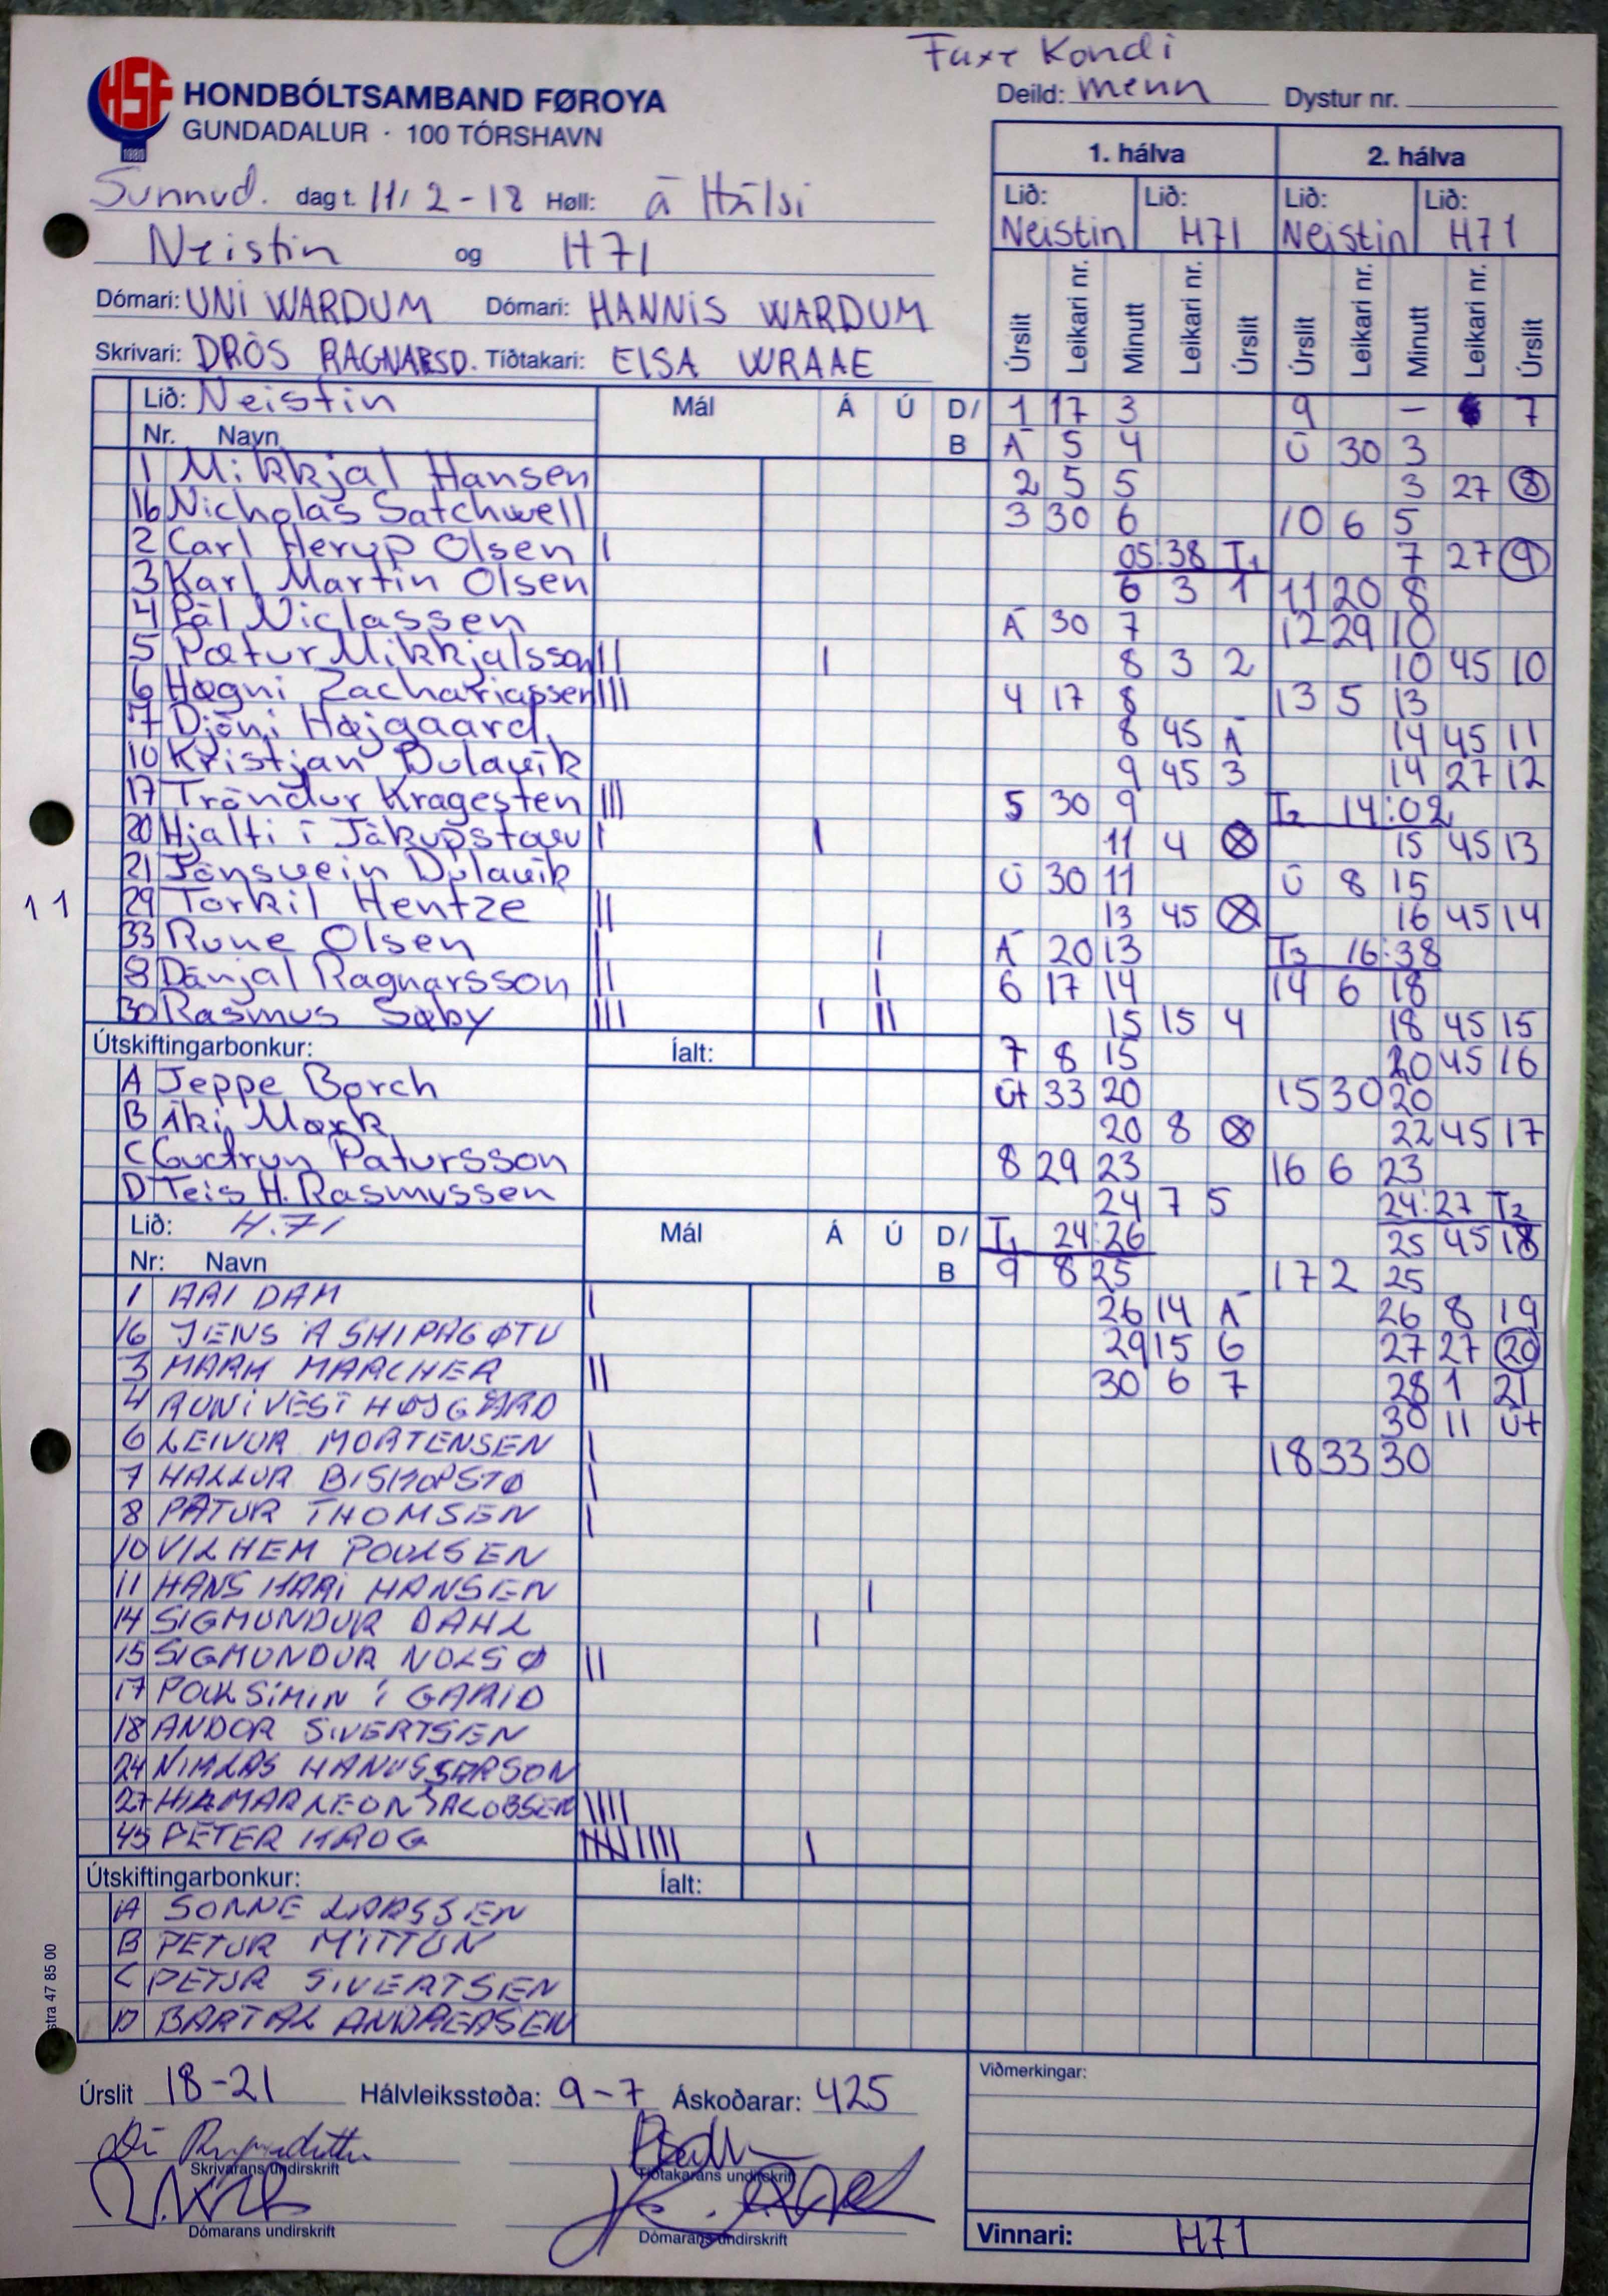 Faxe Kondi
HSF
1980
HONDBÓLTSAMBAND FØROYA
GUNDADALUR · 100 TÓRSHAVN
Deild: menn Dystur nr.
Sunnud. dag t. 11/2-18 Høll: á Hálsi
Neistin og H71
Dómari: UNI WARDUM Dómari: HANNIS WARDUM
Skrivari: DRÓS RAGNARSD. Tíðtakari: ELSA WRAAE
1. hálva 2. hálva
Lið: Lið: Lið: Lið:
Neistin H71 Neistin H71
Úrslit Leikari nr. Minutt Leikari nr. Úrslit Úrslit Leikari nr. Minutt Leikari nr. Úrslit
Lið: Neistin Mál Á Ú D/B
Nr. Navn
1 Mikkjal Hansen
16 Nicholas Satchwell
2 Carl Herup Olsen |
3 Karl Martin Olsen
4 Pál Niclassen
5 Pætur Mikkjalsson || |
6 Høgni Zachariassen |||
7 Djóni Højgaard
10 Kristjan Dulavík
17 Tróndur Kragesten |||
20 Hjalti í Jákupstovu | |
21 Jónsvein Dulavík
11
29 Torkil Hentze ||
33 Rune Olsen | |
8 Dánjal Ragnarsson || |
30 Rasmus Søby ||| | ||
Útskiftingarbonkur: Íalt:
A Jeppe Borch
B Áki Mørk
C Gudrun Patursson
D Teis H. Rasmussen
Lið: H.71 Mál Á Ú D/B
Nr: Navn
1 ARI DAM |
16 JENS Á SKIPAGØTU
3 MARK MARCHER ||
4 RÓNI VEST HØJGÅRD
6 LEIVUR MORTENSEN |
7 HALLUR BISKOPSTØ |
8 PÆTUR THOMSEN |
10 VILHEM POULSEN
11 HANS KARI HANSEN |
14 SIGMUNDUR DAHL |
15 SIGMUNDUR NOLSØ ||
17 POULSIMIN Í GARID
18 ANDOR SIVERTSEN
24 NIKLAS HANUSSARSON
27 HILMAR LEON JACOBSEN ||||
45 PETER KROG ||||| |||| |
Útskiftingarbonkur: Íalt:
A SONNE LARSSEN
B PETUR MITTÚN
C PETUR SIVERTSEN
D BARTAL ANDREASEN
1 17 3
Á 5 4
2 5 5
3 30 6
05:38 T1
6 3 1
Á 30 7
8 3 2
4 17 8
8 45 Á
9 45 3
5 30 9
11 4 ⊗
Ú 30 11
13 45 ⊗
Á 20 13
6 17 14
15 15 4
7 8 15
Út 33 20
20 8 ⊗
8 29 23
24 7 5
T1 24:26
9 8 25
26 14 Á
29 15 6
30 6 7
9 – 7
Ú 30 3
3 27 ⑧
10 6 5
7 27 ⑨
11 20 8
12 29 10
10 45 10
13 5 13
14 45 11
14 27 12
T2 14:02
15 45 13
Ú 8 15
16 45 14
T3 16:38
14 6 18
18 45 15
20 45 16
15 30 20
22 45 17
16 6 23
24:27 T2
25 45 18
17 2 25
26 8 19
27 27 ⑳
28 1 21
30 11 Út
18 33 30
stra 47 85 00
Úrslit 18-21 Hálvleiksstøða: 9-7 Áskoðarar: 425
Skrivarans undirskrift Tíðtakarans undirskrift
Dómarans undirskrift Dómarans undirskrift
Viðmerkingar:
Vinnari: H71